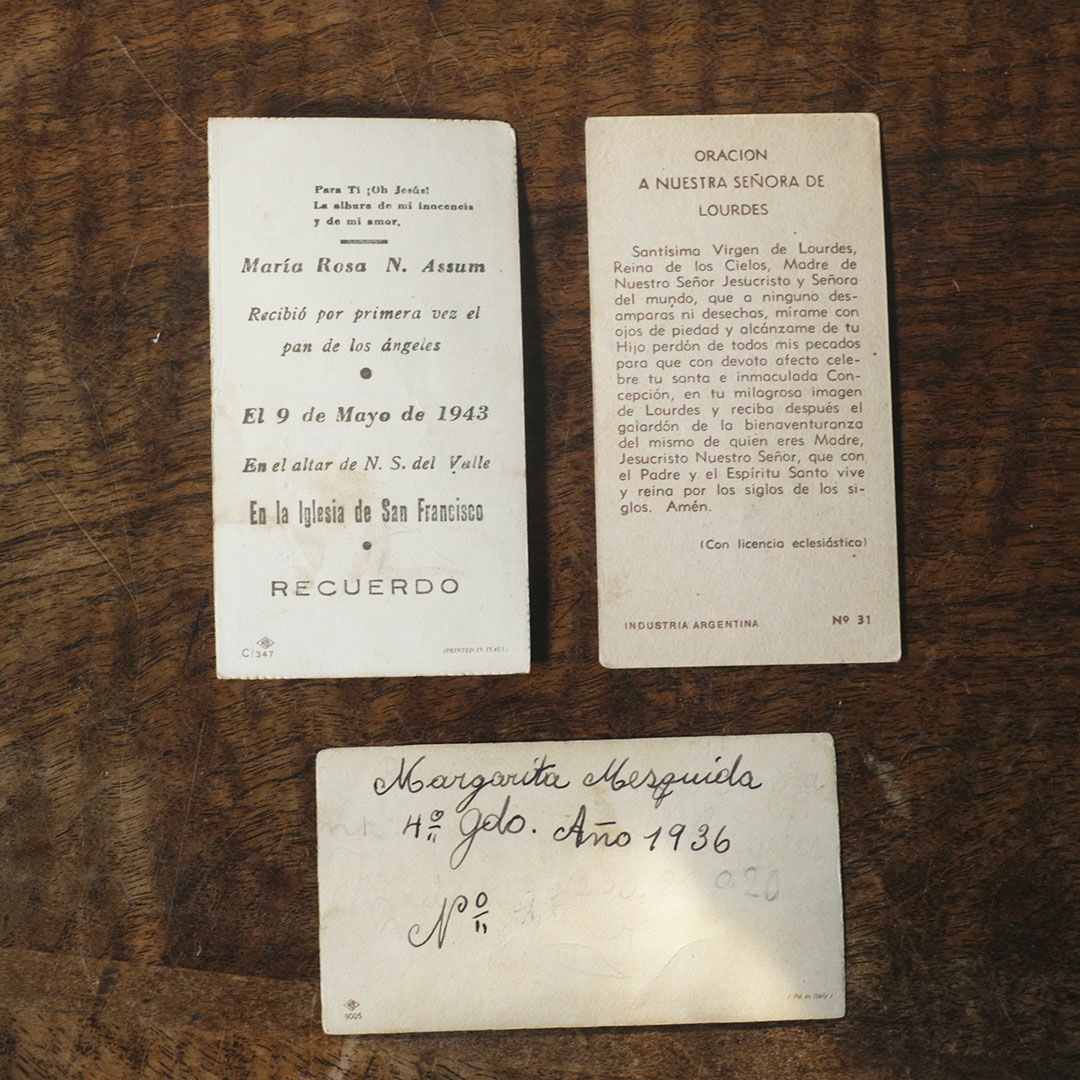 Para Ti ¡Oh Jesús!
La albura de mi inocencia
y de mi amor.
María Rosa N. Assum
Recibió por primera vez el
pan de los ángeles
El 9 de Mayo de 1943
En el altar de N. S. del Valle
En la Iglesia de San Francisco
RECUERDO
C/347
(PRINTED IN ITALY)
ORACION
A NUESTRA SEÑORA DE
LOURDES
Santísima Virgen de Lourdes,
Reina de los Cielos, Madre de
Nuestro Señor Jesucristo y Señora
del mundo, que a ninguno des-
amparas ni desechas, mírame con
ojos de piedad y alcánzame de tu
Hijo perdón de todos mis pecados
para que con devoto afecto cele-
bre tu santa e inmaculada Con-
cepción, en tu milagrosa imagen
de Lourdes y reciba después el
galardón de la bienaventuranza
del mismo de quien eres Madre,
Jesucristo Nuestro Señor, que con
el Padre y el Espíritu Santo vive
y reina por los siglos de los si-
glos. Amén.
(Con licencia eclesiástica)
INDUSTRIA ARGENTINA Nº 31
Margarita Mezquida
4º gdo. Año 1936
0.20
Nº
9005
(Pd. in Italy)